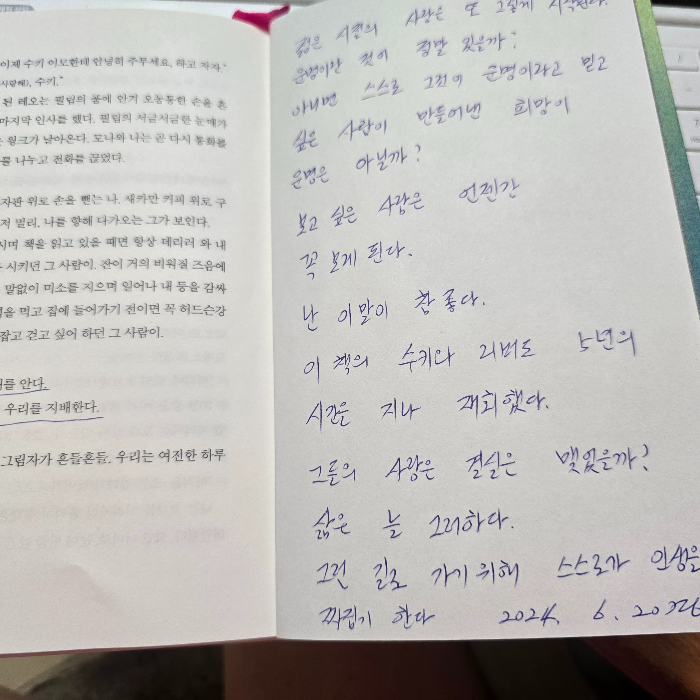 이제 수키 이모한테 안녕히 주무세요, 하고 자자."
사랑해), 수키."
된 레오는 필립의 품에 안겨 오동통한 손을 흔
마지막 인사를 했다. 필립의 서글서글한 눈매가
윙크가 날아온다. 도나와 나는 곧 다시 통화를
를 나누고 전화를 끊었다.
자판 위로 손을 뻗는 나. 새카만 커피 위로 구
저 멀리, 나를 향해 다가오는 그가 보인다.
시며 책을 읽고 있을 때면 항상 데리러 와 내
시키던 그 사람이. 잔이 거의 비워질 즈음에
말없이 미소를 지으며 일어나 내 등을 감싸
을 먹고 집에 들어가기 전이면 꼭 허드슨강
잡고 걷고 싶어 하던 그 사람이.
를 안다.
우리를 지배한다.
그림자가 흔들흔들. 우리는 여진한 하루
젊은 시절의 사랑은 또 그렇게 시작된다.
운명이란 것이 정말 있을까?
아니면 스스로 그것이 운명이라고 믿고
싶은 사람이 만들어낸 희망이
운명은 아닐까?
보고 싶은 사람은 언젠간
꼭 보게 된다.
난 이말이 참 좋다.
이 책의 수키와 리버도 5년의
시간을 지나 재회했다.
그들의 사랑은 결실은 맺었을까?
삶은 늘 그러하다.
그런 길로 가기위해 스스로가 인생을
짜집기 한다 2024. 6. 20